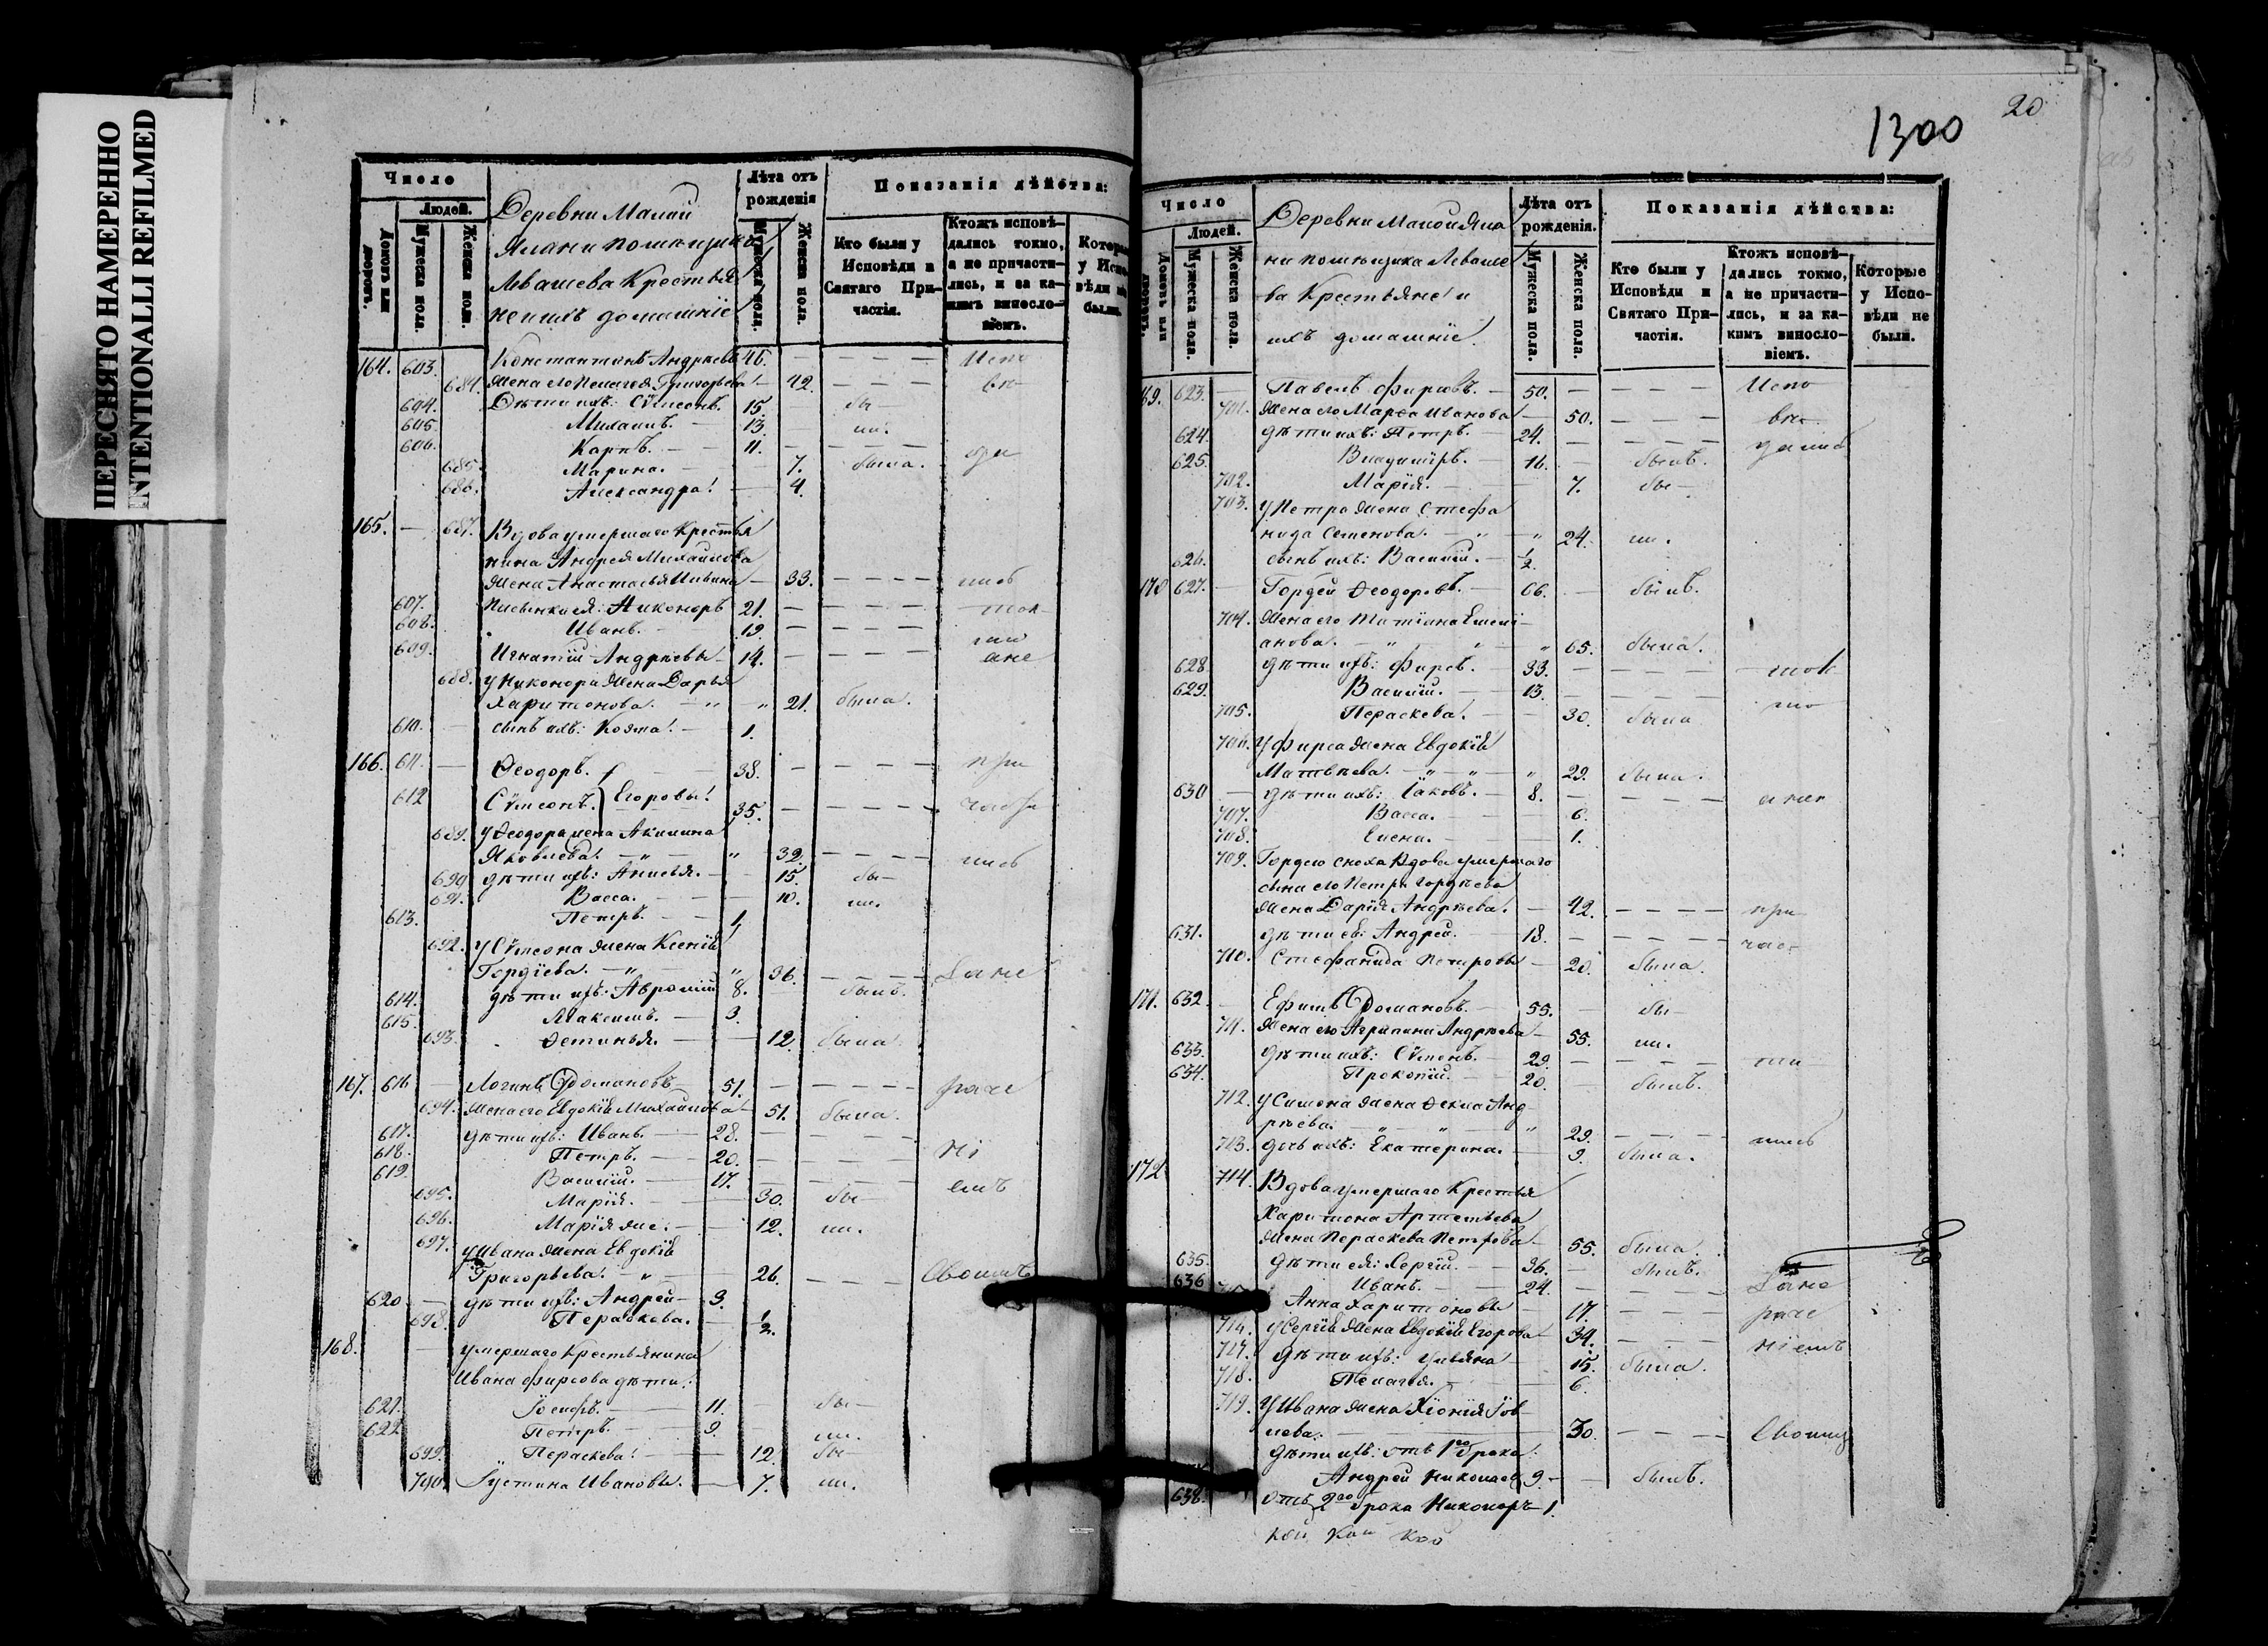 ПЕРЕСНЯТО НАМЕРЕННО
INTENTIONALLI REFILMED
Число
Людей.
Домовъ или дворовъ.
Мужеска пола.
Женска пола.
Деревни Малай
Ялани помѣщика
Левашева Крестья
не ихъ домашніе
Лѣта отъ рожденія
Мужеска пола.
Женска пола.
Показанія дѣйства:
Кто были у Исповѣди и Святаго Причастія.
Ктожъ исповѣдались токмо, а не причастились, и за какимъ винословіемъ.
164. 603. Константинъ Андреевъ 46. — — — Испо
684. Жена его Пелагея Григорьева — 42. — — — вѣ
604. Дѣти ихъ: Сѵмеонъ. 15. бы
605. Михаилъ. 13. ли.
606. Карпъ. 11. — — —
685. Марина. 7. была.
686. Александра. 4.
165. — 687. Вдова умершаго Крестья
нина Андрея Михайлова
жена Анастасья Ильина — 33. — — — лись
607. Пасынки ея: Никоноръ 21. — — — ток
608. Иванъ. 19. — — —
609. Игнатій Андреевы 14. — — —
688. у Никонора жена Дарья
Харитонова. 21. была.
610. сынъ ихъ: Козма. 1.
166. 611. Ѳеодоръ. 38. — — — при
612 Сѵмеонъ. } Егоровы. 35. — — —
689. у Ѳеодора жена Акилина
Яковлева. 32. — — — лись
690 дѣти ихъ: Анисья. 15. бы
691. Васса. 10. ли.
613. Петръ. 1.
692. у Сѵмеона жена Ксенія
Гордѣева. 36. — — —
614. дѣти ихъ: Аврамій 8. былъ.
615. Максимъ. 3.
693. Ѳетинья. 12. была.
167. 616 Логинъ Романовъ 51. — — — раче
694. Жена его Евдокія Михайлова 51. была.
617. дѣти ихъ: Иванъ. 28. — — —
618. Петръ. 20. — — — ні
619. Василій. 17. — — — емъ
695. Марія. 30. бы
696. Марія же. 12. ли.
697. у Ивана жена Евдокія
Григорьева. 26. — — — Своимъ
620 дѣти ихъ: Андрей 3.
698. Параскева. 1/2.
168. умершаго крестьянина
Ивана Фирсова дѣти:
621. Іосифъ. 11. бы
622 Петръ. 9. ли.
699. Пераскева. 12. бы
700. Іустина Ивановы. 7. ли.
1300
20
Число
Людей.
Домовъ или дворовъ.
Мужеска пола.
Женска пола.
Деревни Малой Яла
ни помѣщика Леваше
ва Крестьяне и
ихъ домашніе.
Лѣта отъ рожденія.
Мужеска пола.
Женска пола.
Показанія дѣйства:
Кто были у Исповѣди и Святаго Причастія.
Ктожъ исповѣдались токмо, а не причастились, и за какимъ винословіемъ.
Которые у Исповѣди не были.
69. 623. Павелъ Фирсовъ. 50. — — — Испо
701. Жена его Марѳа Иванова 50. — — — вѣ
624. дѣти ихъ: Петръ. 24. — — —
625. Владиміръ. 16. былъ.
702. Марія. 7. бы
703. у Петра жена Стефа
нида Семенова. 24. ли.
626. сынъ ихъ: Василій. 1/2.
170 627. Гордей Ѳеодоровъ. 66. былъ.
704. Жена его Татіана Емели
анова. 65. была.
628 дѣти ихъ: Фирсъ. 33. — — — ток
629. Василій. 13. — — — мо
705. Пераскева. 30. была
706. у Фирса жена Евдокія
Матвѣева. 29. была.
630 дѣти ихъ: Іаковъ. 8. — — —
707. Васса. 6.
708. Елена. 1.
709. Гордею сноха Вдова умершаго
сына его Петра Гордѣева
жена Дарія Андреева. 42. — — — при
631. дѣти ея: Андрей. 18. — — — час
710. Стефанида Петровы 20. была.
171. 632. Ефимъ Романовъ. 55. бы
711. Жена его Агрипина Андреева 55. ли.
633. дѣти ихъ: Сѵмеонъ. 29. — — — ти
634. Прокопій. 20. былъ.
712. у Симеона жена Ѳекла Анд
рѣева. 29. — — — лись
713. дочь ихъ: Екатерина. 9. была.
172 714. Вдова умершаго Крестья
Харитона Артемьева
жена Пераскева Петрова 55. была.
635. дѣти ея: Сергій. 36. былъ.
636 Иванъ. 24.
Анна Харитоновы 17. — — — раче
716. у Сергія жена Евдокія Егорова 34. — — — ніемъ
717. дѣти ихъ: Ульяна 15. была.
718. Пелагея. 6.
719. у Ивана жена Хіонія Іов
лева. 30. — — —
дѣти ихъ: отъ 1го брака.
Андрей Николаевъ 9. былъ.
638. отъ 2го брака Никоноръ 1.